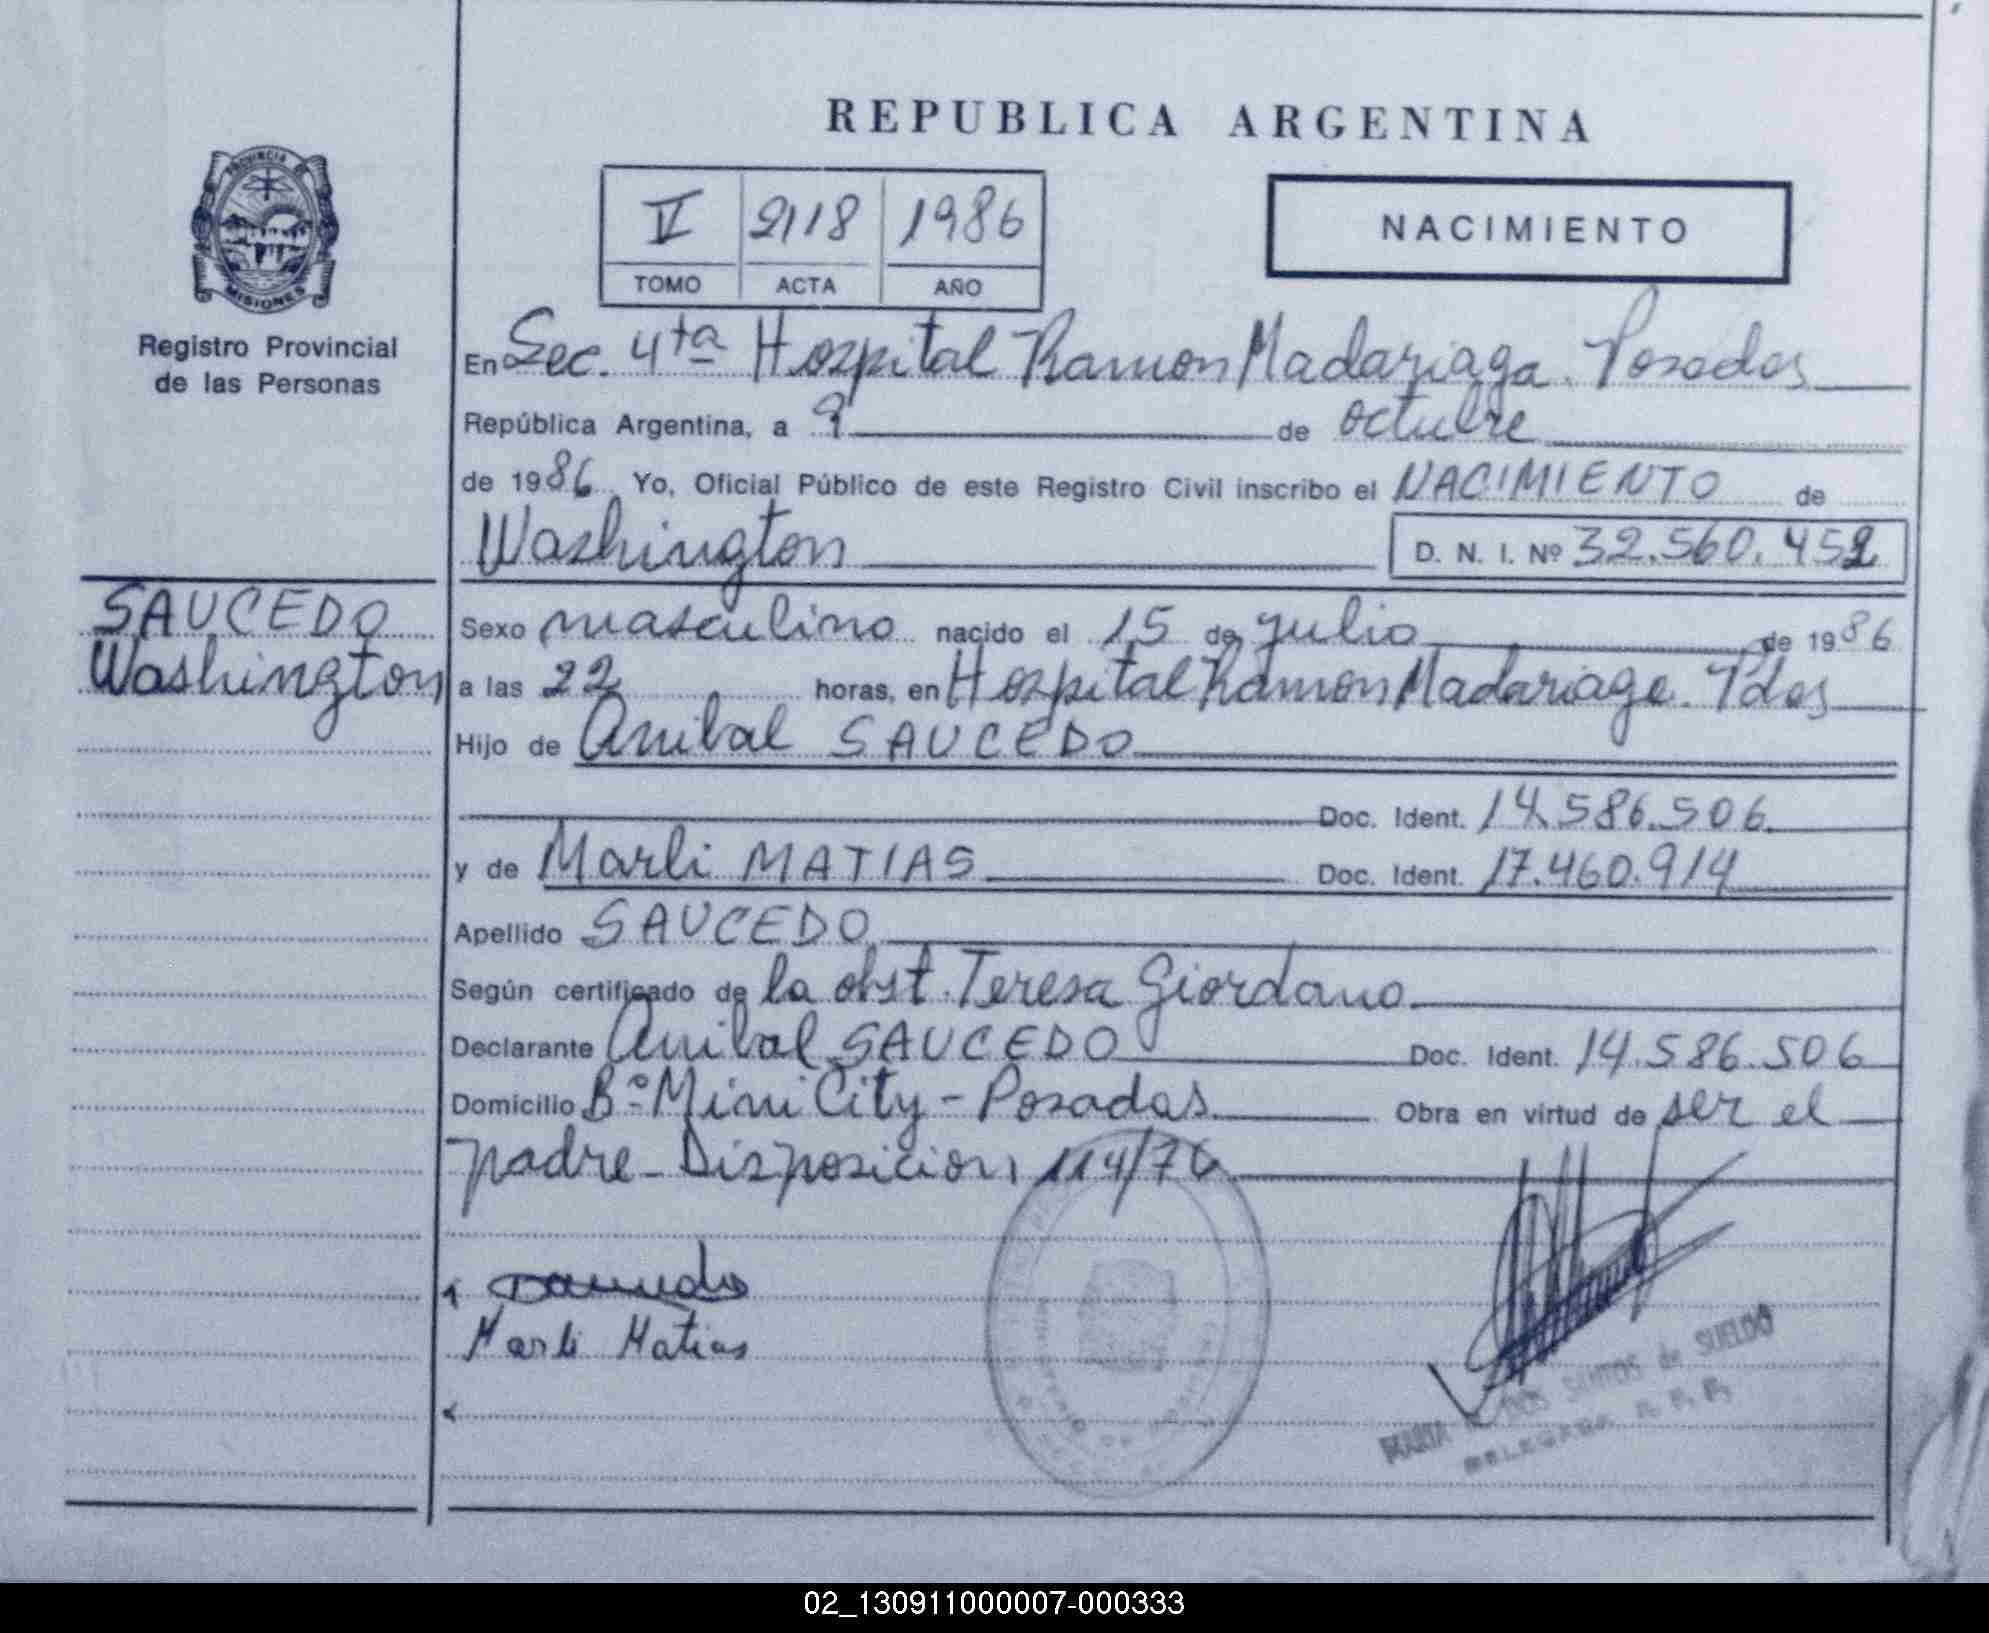 REPUBLICA ARGENTINA
PROVINCIA DE
MISIONES
Registro Provincial
de las Personas
V 2118 1986
TOMO ACTA AÑO
NACIMIENTO
En Sec. 4ta Hospital Ramon Madariaga. Posadas
República Argentina, a 9 de octubre
de 1986 Yo, Oficial Público de este Registro Civil inscribo el NACIMIENTO de
Washington D. N. I. Nº 32.560.452
SAUCEDO
Washington
Sexo masculino nacido el 15 de julio de 1986
a las 22 horas, en Hospital Ramon Madariaga. Pdas
Hijo de Anibal SAUCEDO
Doc. Ident. 14.586.506
y de Marli MATIAS Doc. Ident. 17.460.914
Apellido SAUCEDO
Según certificado de la obst. Teresa Giordano
Declarante Anibal SAUCEDO Doc. Ident. 14.586.506
Domicilio Bº Mini City - Posadas Obra en virtud de ser el
padre - Disposicion 114/76
Marli Matias
DOS SANTOS de SUELDO
DELEGADA R. P. P.
02_130911000007-000333